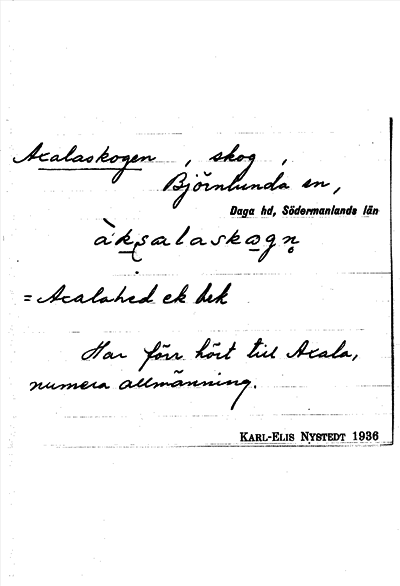 Axalaskogen, skog,
Björnlunda sn,
Daga hd, Södermanlands län
àksalaskogn̥
= Axalahed ek bek
Har förr hört till Axala,
numera allmänning.
KARL-ELIS NYSTEDT 1936